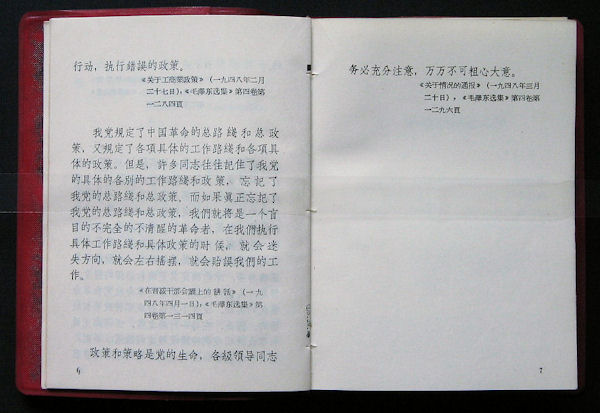 行动，执行錯誤的政策。
《关于工商業政策》（一九四八年二月
二十七日），《毛澤东选集》第四卷第
一二八四頁
我党規定了中国革命的总路綫和总政
策，又規定了各項具体的工作路綫和各項具
体的政策。但是，許多同志往往記住了我党
的具体的各別的工作路綫和政策，忘記了
我党的总路綫和总政策。而如果眞正忘記了
我党的总路綫和总政策，我們就將是一个盲
目的不完全的不清醒的革命者，在我們执行
具体工作路綫和具体政策的时候，就会迷
失方向，就会左右搖摆，就会貽誤我們的工
作。
《在晋綏干部会議上的講話》（一九
四八年四月一日），《毛澤东选集》第
四卷第一三一四頁
政策和策略是党的生命，各級領导同志
6
务必充分注意，万万不可粗心大意。
《关于情况的通报》（一九四八年三月
二十日），《毛澤东选集》第四卷第
一二九六頁
7